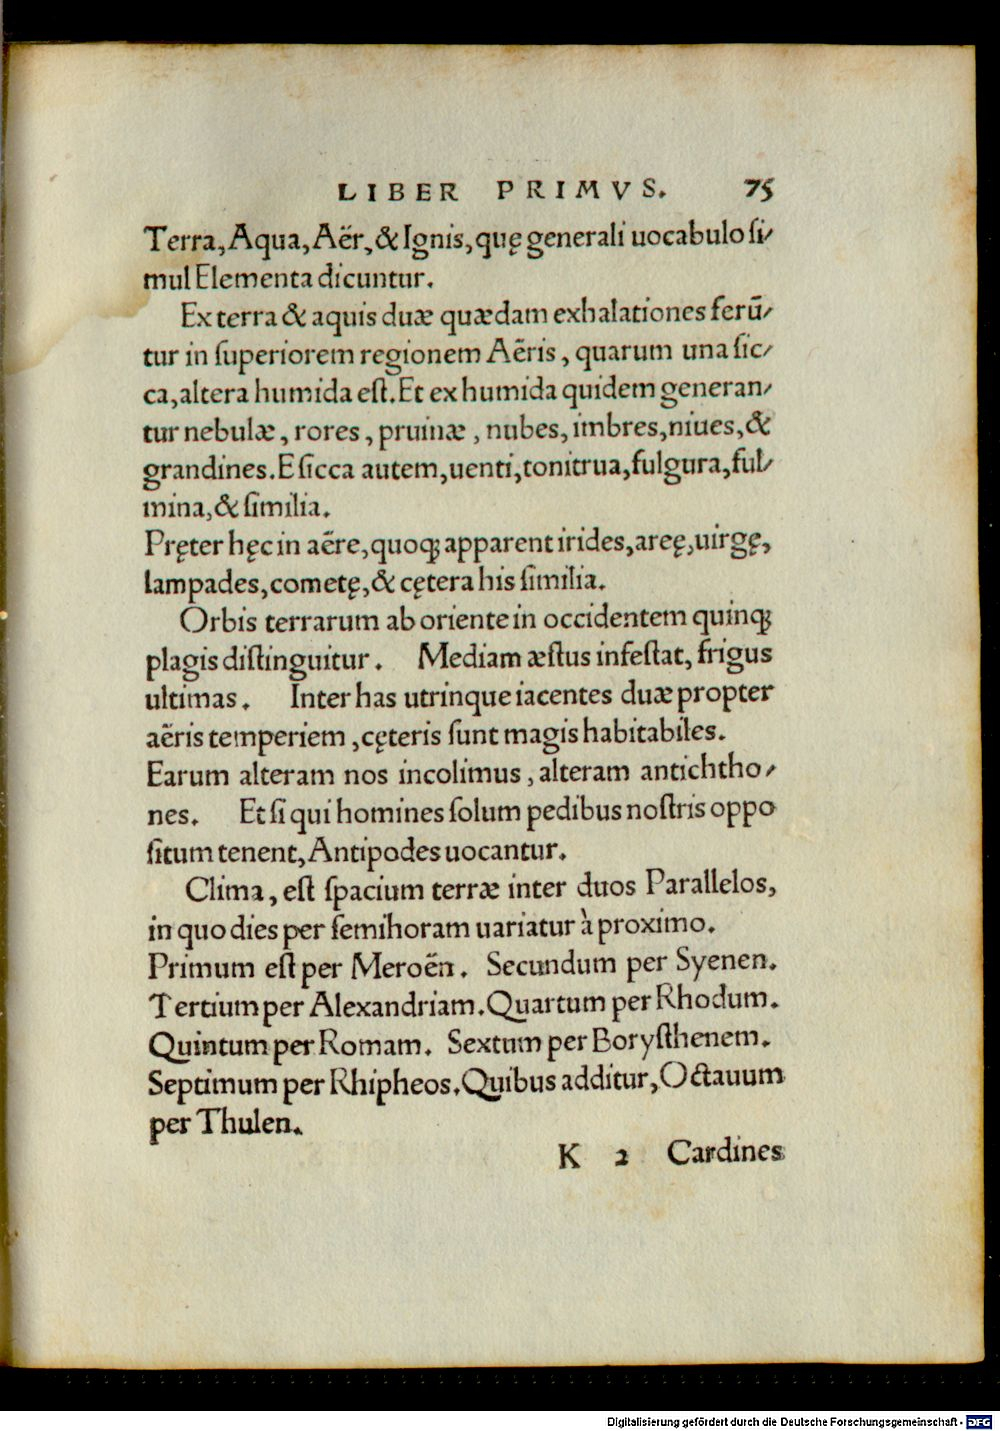 LIBER PRIMVS. 75
Terra, Aqua, Aër, & Ignis, quę generali uocabulo ſi-
mul Elementa dicuntur.
Ex terra & aquis duæ quædam exhalationes ferū-
tur in ſuperiorem regionem Aëris, quarum una ſic-
ca, altera humida eſt. Et ex humida quidem generan-
tur nebulæ, rores, pruinæ, nubes, imbres, niues, &
grandines. E ſicca autem, uenti, tonitrua, fulgura, ful-
mina, & ſimilia.
Pręter hęc in aëre, quoq; apparent irides, areę, uirgę,
lampades, cometę, & cętera his ſimilia.
Orbis terrarum ab oriente in occidentem quinq;
plagis diſtinguitur. Mediam æſtus infeſtat, frigus
ultimas. Inter has utrinque iacentes duæ propter
aëris temperiem, cęteris ſunt magis habitabiles.
Earum alteram nos incolimus, alteram antichtho-
nes. Et ſi qui homines ſolum pedibus noſtris oppo
ſitum tenent, Antipodes uocantur.
Clima, eſt ſpacium terræ inter duos Parallelos,
in quo dies per ſemihoram uariatur à proximo.
Primum eſt per Meroën. Secundum per Syenen.
Tertium per Alexandriam. Quartum per Rhodum.
Quintum per Romam. Sextum per Boryſthenem.
Septimum per Rhipheos. Quibus additur, Octauum
per Thulen.
K 2 Cardines
Digitalisierung gefördert durch die Deutsche Forschungsgemeinschaft - DFG